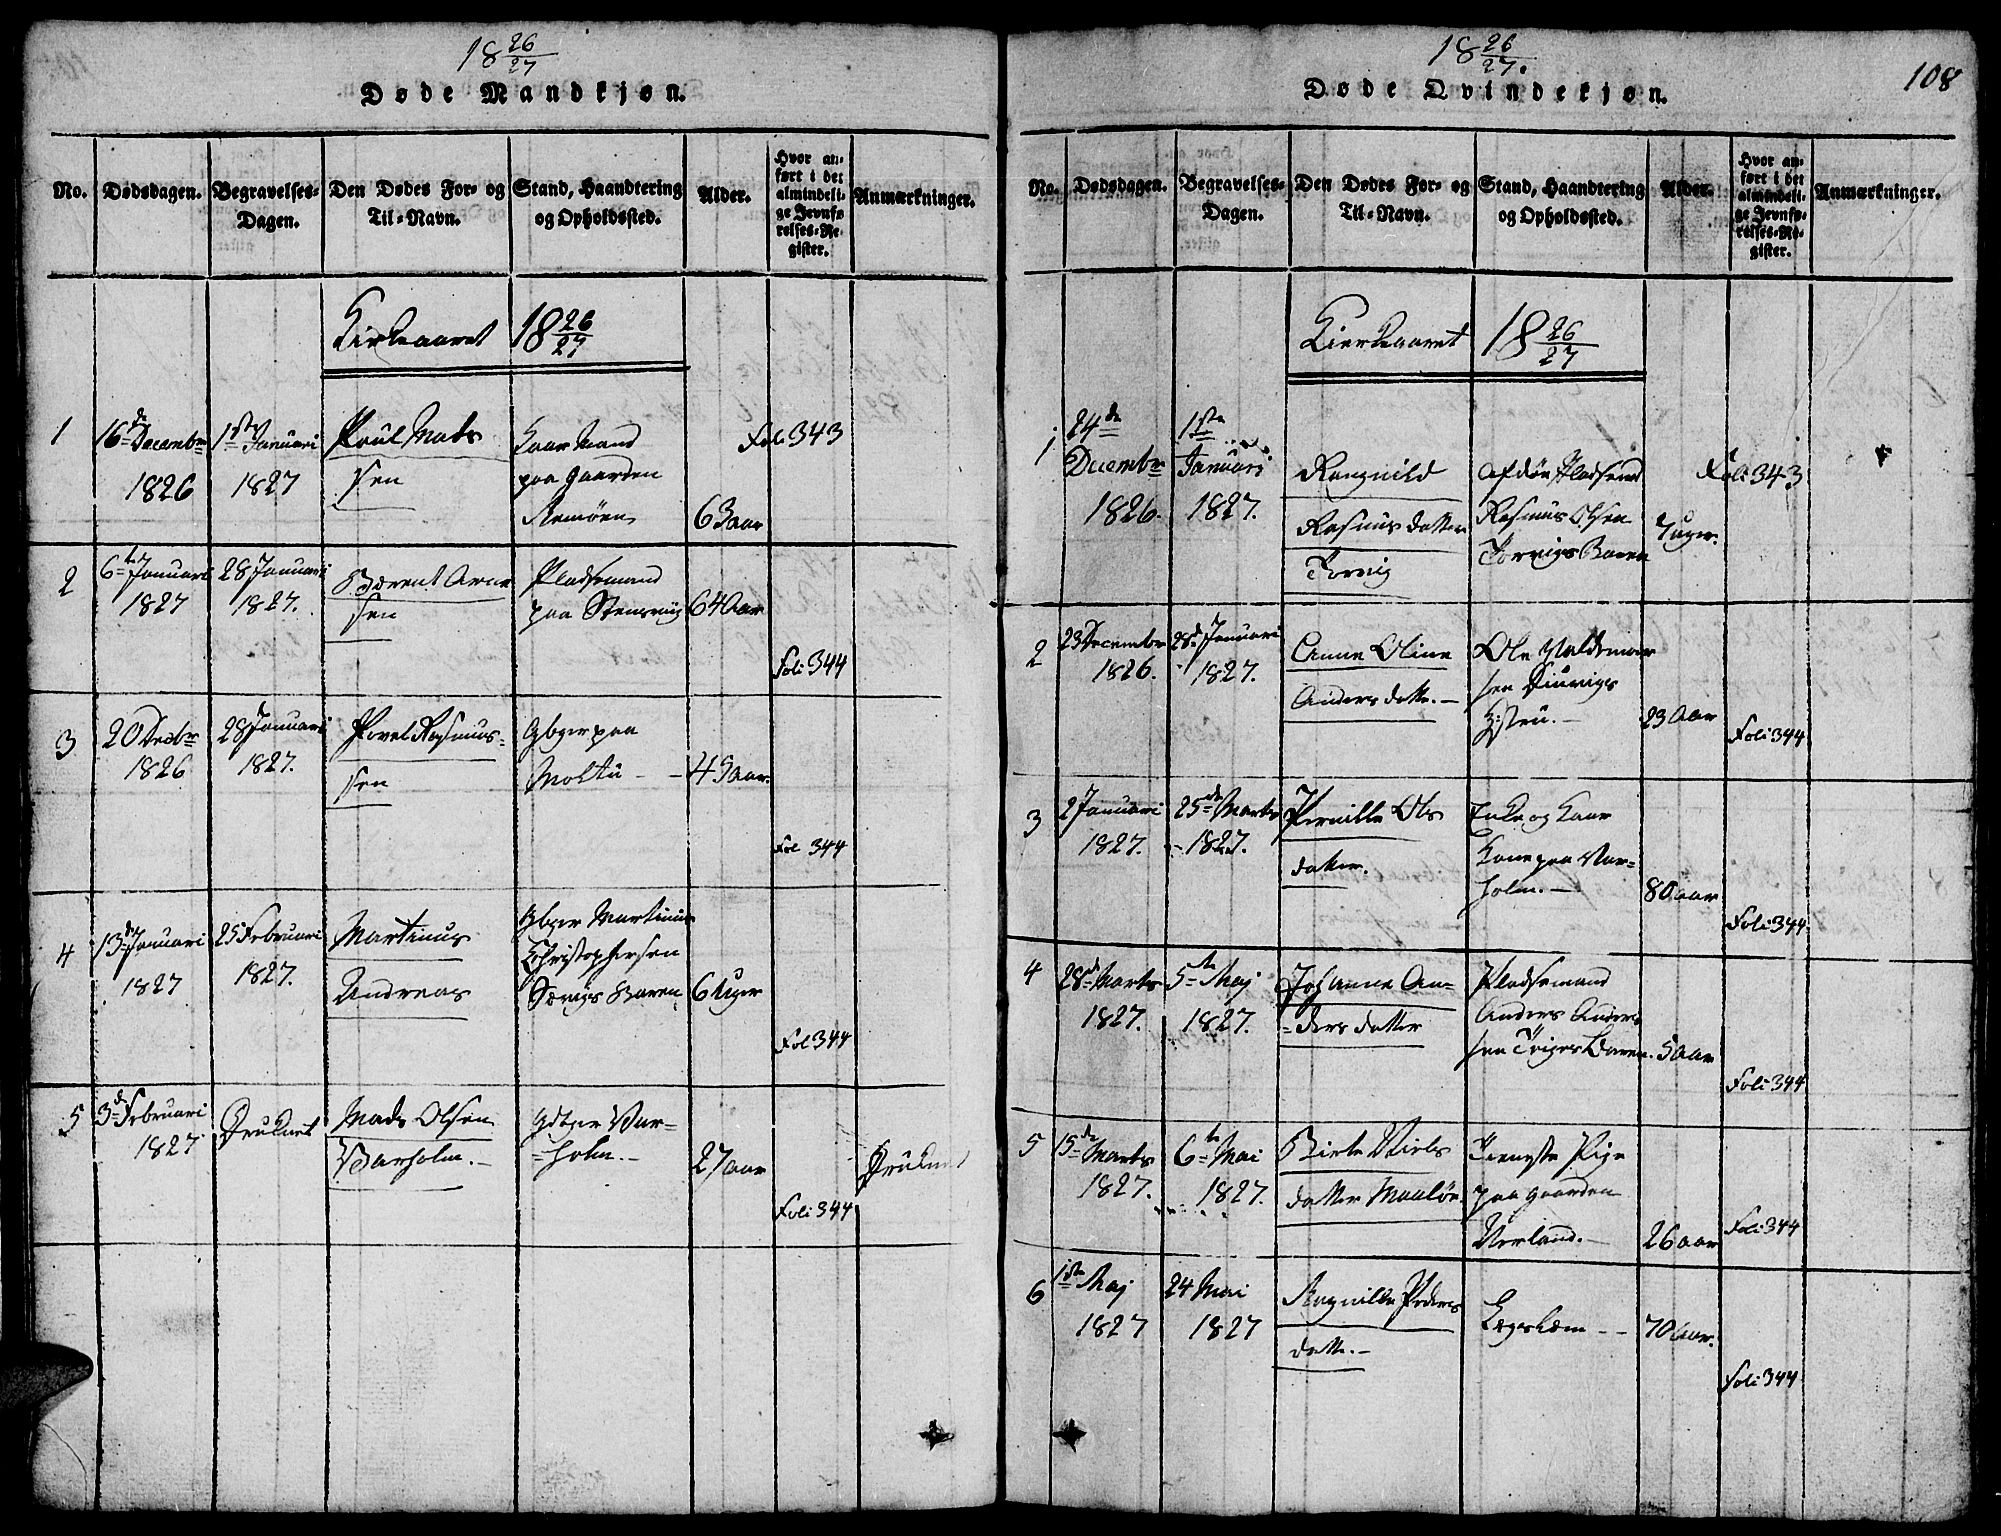 18 26/27
Døde Mandkjøn.
No. Dødsdagen. Begravelses-Dagen. Den Dødes For- og Til-Navn. Stand, Haandtering og Opholdssted. Alder. Hvor anført i det almindelige Jevnførelses-Register. Anmærkninger.
Kirkeaaret 18 26/27
1 16de Decembr 1826 1ste Januari 1827 Poul Mats sen Kaarmand paa Gaarden Remøen 63 aar Fol 343
2 6te Januari 1827 28 Januari 1827. Bærent Arne sen Pladsemand paa Stensvig 64 Aar Foli 344
3 20 Decbr 1826 28 Januari 1827. Povel Rasmus- sen Gbger paa Moltu - - 49 aar. Fol 344
4 13de Januari 1827 25 Februari 1827. Martinus Andreas Gbger Martinus Christophersen Sævigs Baren 6 Uger Fol 344
5 3de Februari 1827 Druknet Mads Olsen Varholm.- Gdbger Var- =holm.- 27 aar Foli 344 Druknet
18 26/27.
108
Døde Qvindekjøn.
No. Dødsdagen. Begravelses-Dagen. Den Dødes For- og Til-Navn. Stand, Haandtering og Opholdssted. Alder. Hvor anført i det almindelige Jevnførelses-Register. Anmærkninger.
Kierkaaret 18 26/27
1 24de Decembr 1826. 1ste Januari 1827. Rangnild Rasmus datter Torvig Afdøn Pladsemd Rasmus Olsen Torvigs Baren 7 uger. Foli 343
2 23 Decembr 1826. 28de Januari 1827. Anne Oline Anders datte.- Ole Valdemar sen 23 Aar Foli 344
3 2 Januari 1827. 25de Marts 1827. Pernille Ols datter. Enke og Kaar Kone paa Var- holm.- 80 aar Foli 344
4 28de Marts 1827. 5te Maj 1827. Johanne An= =ders datter Pladsemand Anders Anders sen Baren. 5 aar Foli 344
5 15de Marts 1827. 6te Mai 1827. Birte Niels datter Maaløe Tieneste Pige paa Gaarden Nerland.- 26 aar Foli 344
6 1ste Maj 1827 24 Mai 1827 Ragnille Peders datte.- Legdslem - - 70 aar. Foli 344